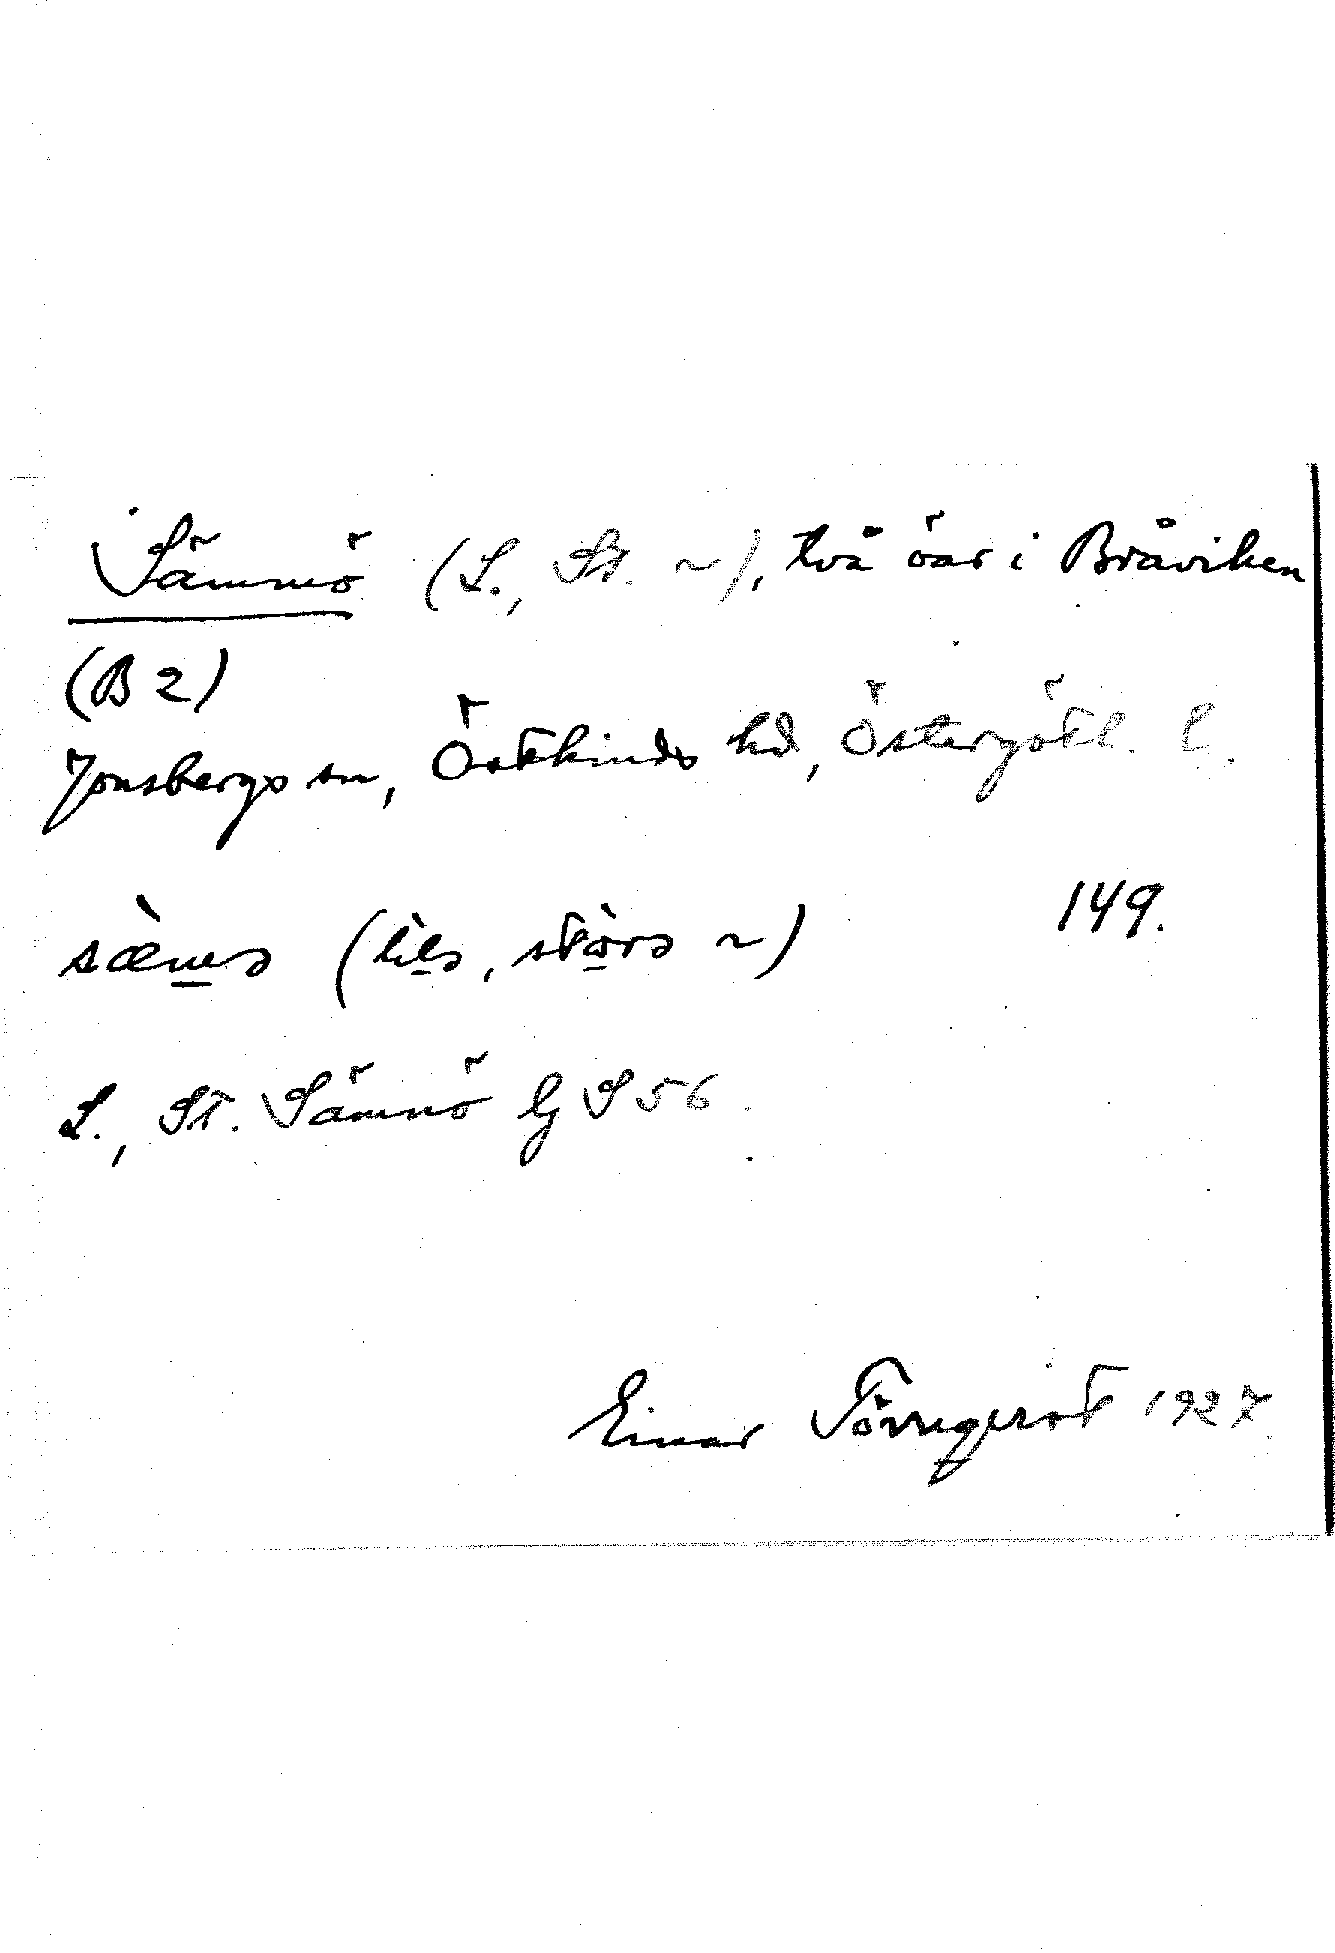 Sämmö (L., St. ~), två öar i Bråviken
(B 2)
Jonsbergs sn, Östkinds hd, Östergötl. l.
149.
L., St. Sämnö GS 56
Einar Törnqvist 1927